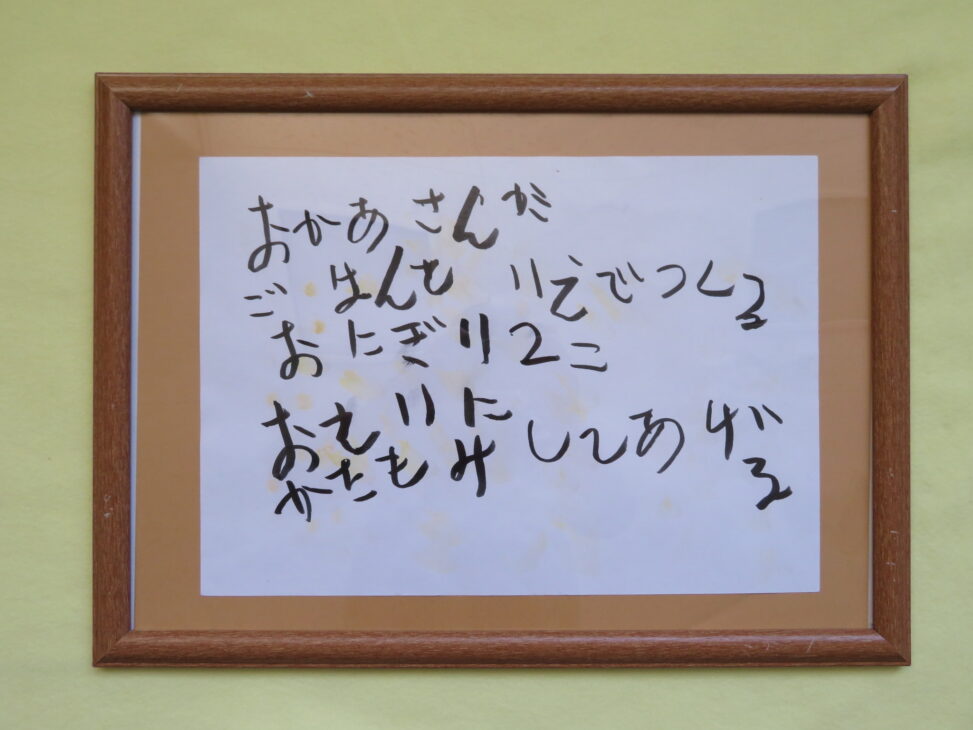 おかあさんが
ごはんを いえでつくる
おにぎり2こ
おれいに
かたもみ してあげる